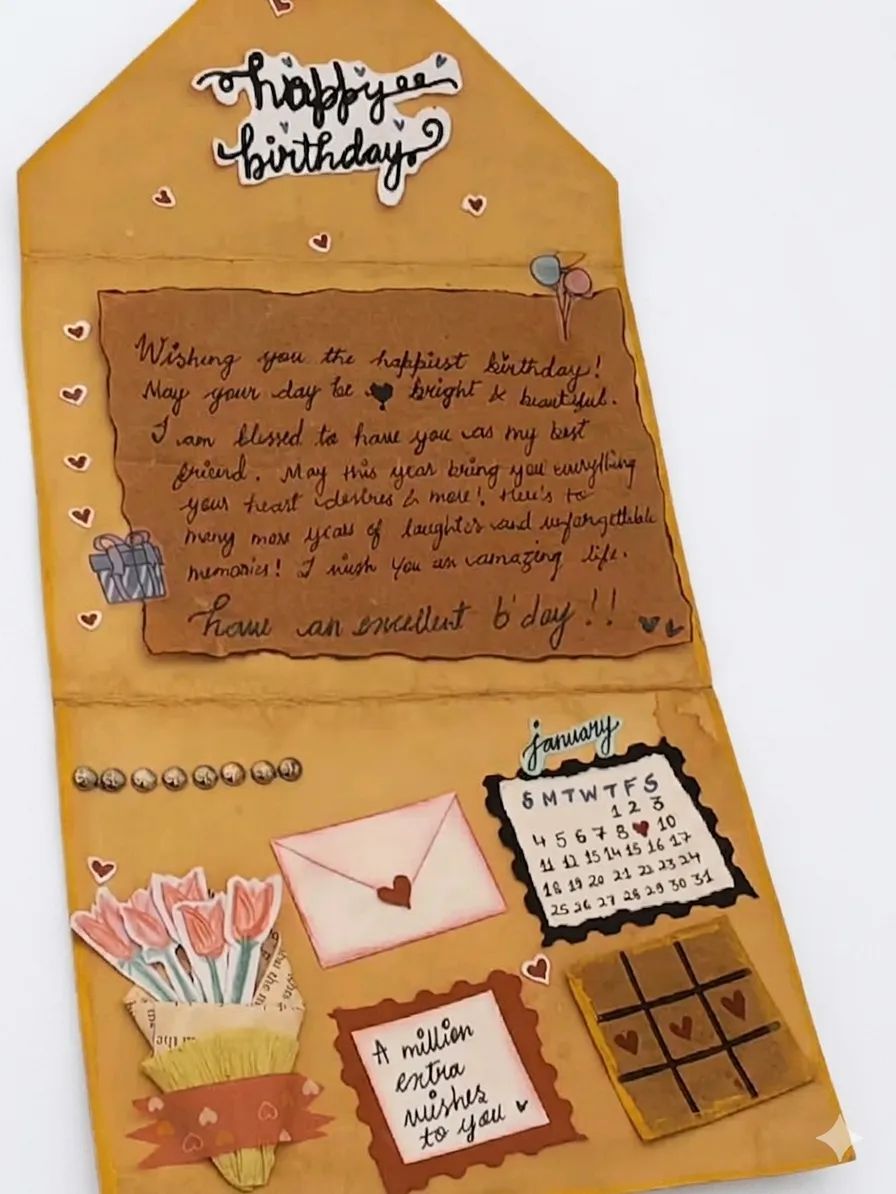 happy
birthday
Wishing you the happiest birthday!
May your day be bright & beautiful.
I am blessed to have you as my best
friend. May this year bring you everything
your heart desires & more! Here's to
many more years of laughter and unforgettable
memories! I wish you an amazing life.
have an excellent b'day!!
january
S M T W T F S
1 2 3
4 5 6 7 8 10
11 12 15 14 15 16 17
18 19 20 21 22 23 24
25 26 27 28 29 30 31
A million
extra
wishes
to you